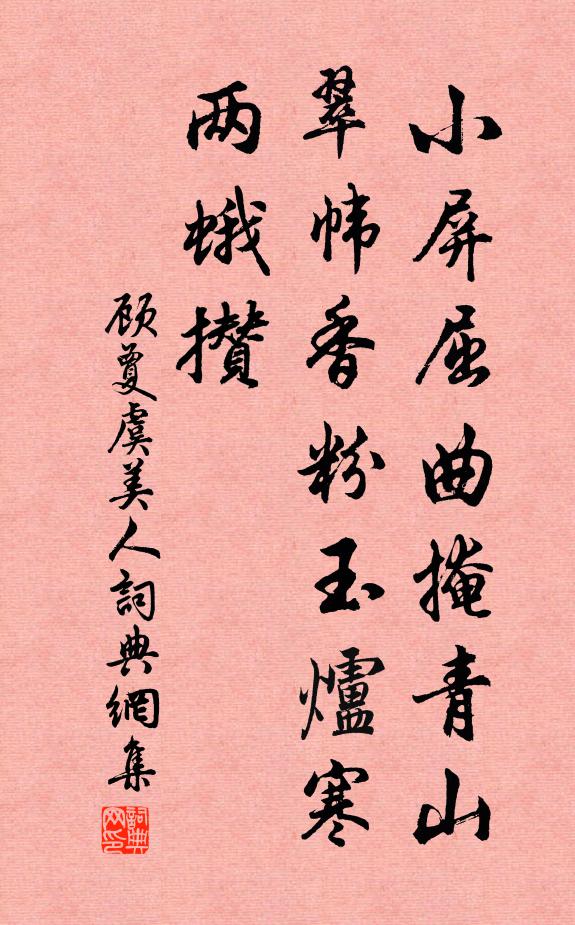 小屏屈曲掩青山
翠帏香粉玉爐寒
两蛾攢
顾夐虞美人詞典網集
詞典网印